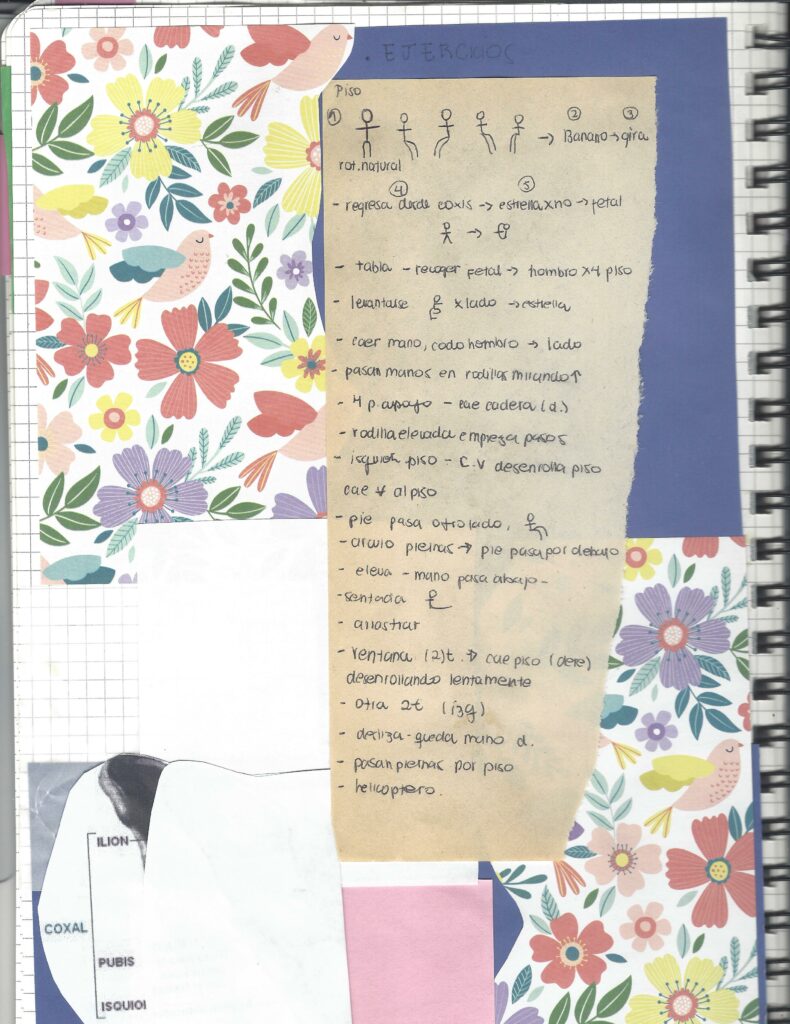 . EJERCICIOS
Piso
① → ② Banano → ③ gira
rot. natural
④ ⑤
- regresa desde coxis → estrella x no → fetal
→
- tabla - recoger fetal → hombro x4 piso
- levantarse x lado → estrella
- caer mano, codo hombro → lado
- pasan manos en rodillas mirando ↑
- 4 p. apoyo - cae cadera (d.)
- rodilla elevada empieza pasos
- isquion piso - C.V desenrolla piso
cae al piso
- pie pasa otro lado,
- arco piernas → pie pasa por debajo
- eleva - mano pasa abajo -
- sentada
- arrastrar
- ventana (2)t. → cae piso (dere)
desenrollando lentamente
- otra 2t (izq)
- desliza - queda mano d.
- pasan piernas por piso
- helicoptero.
ILION
COXAL
PUBIS
ISQUIOI